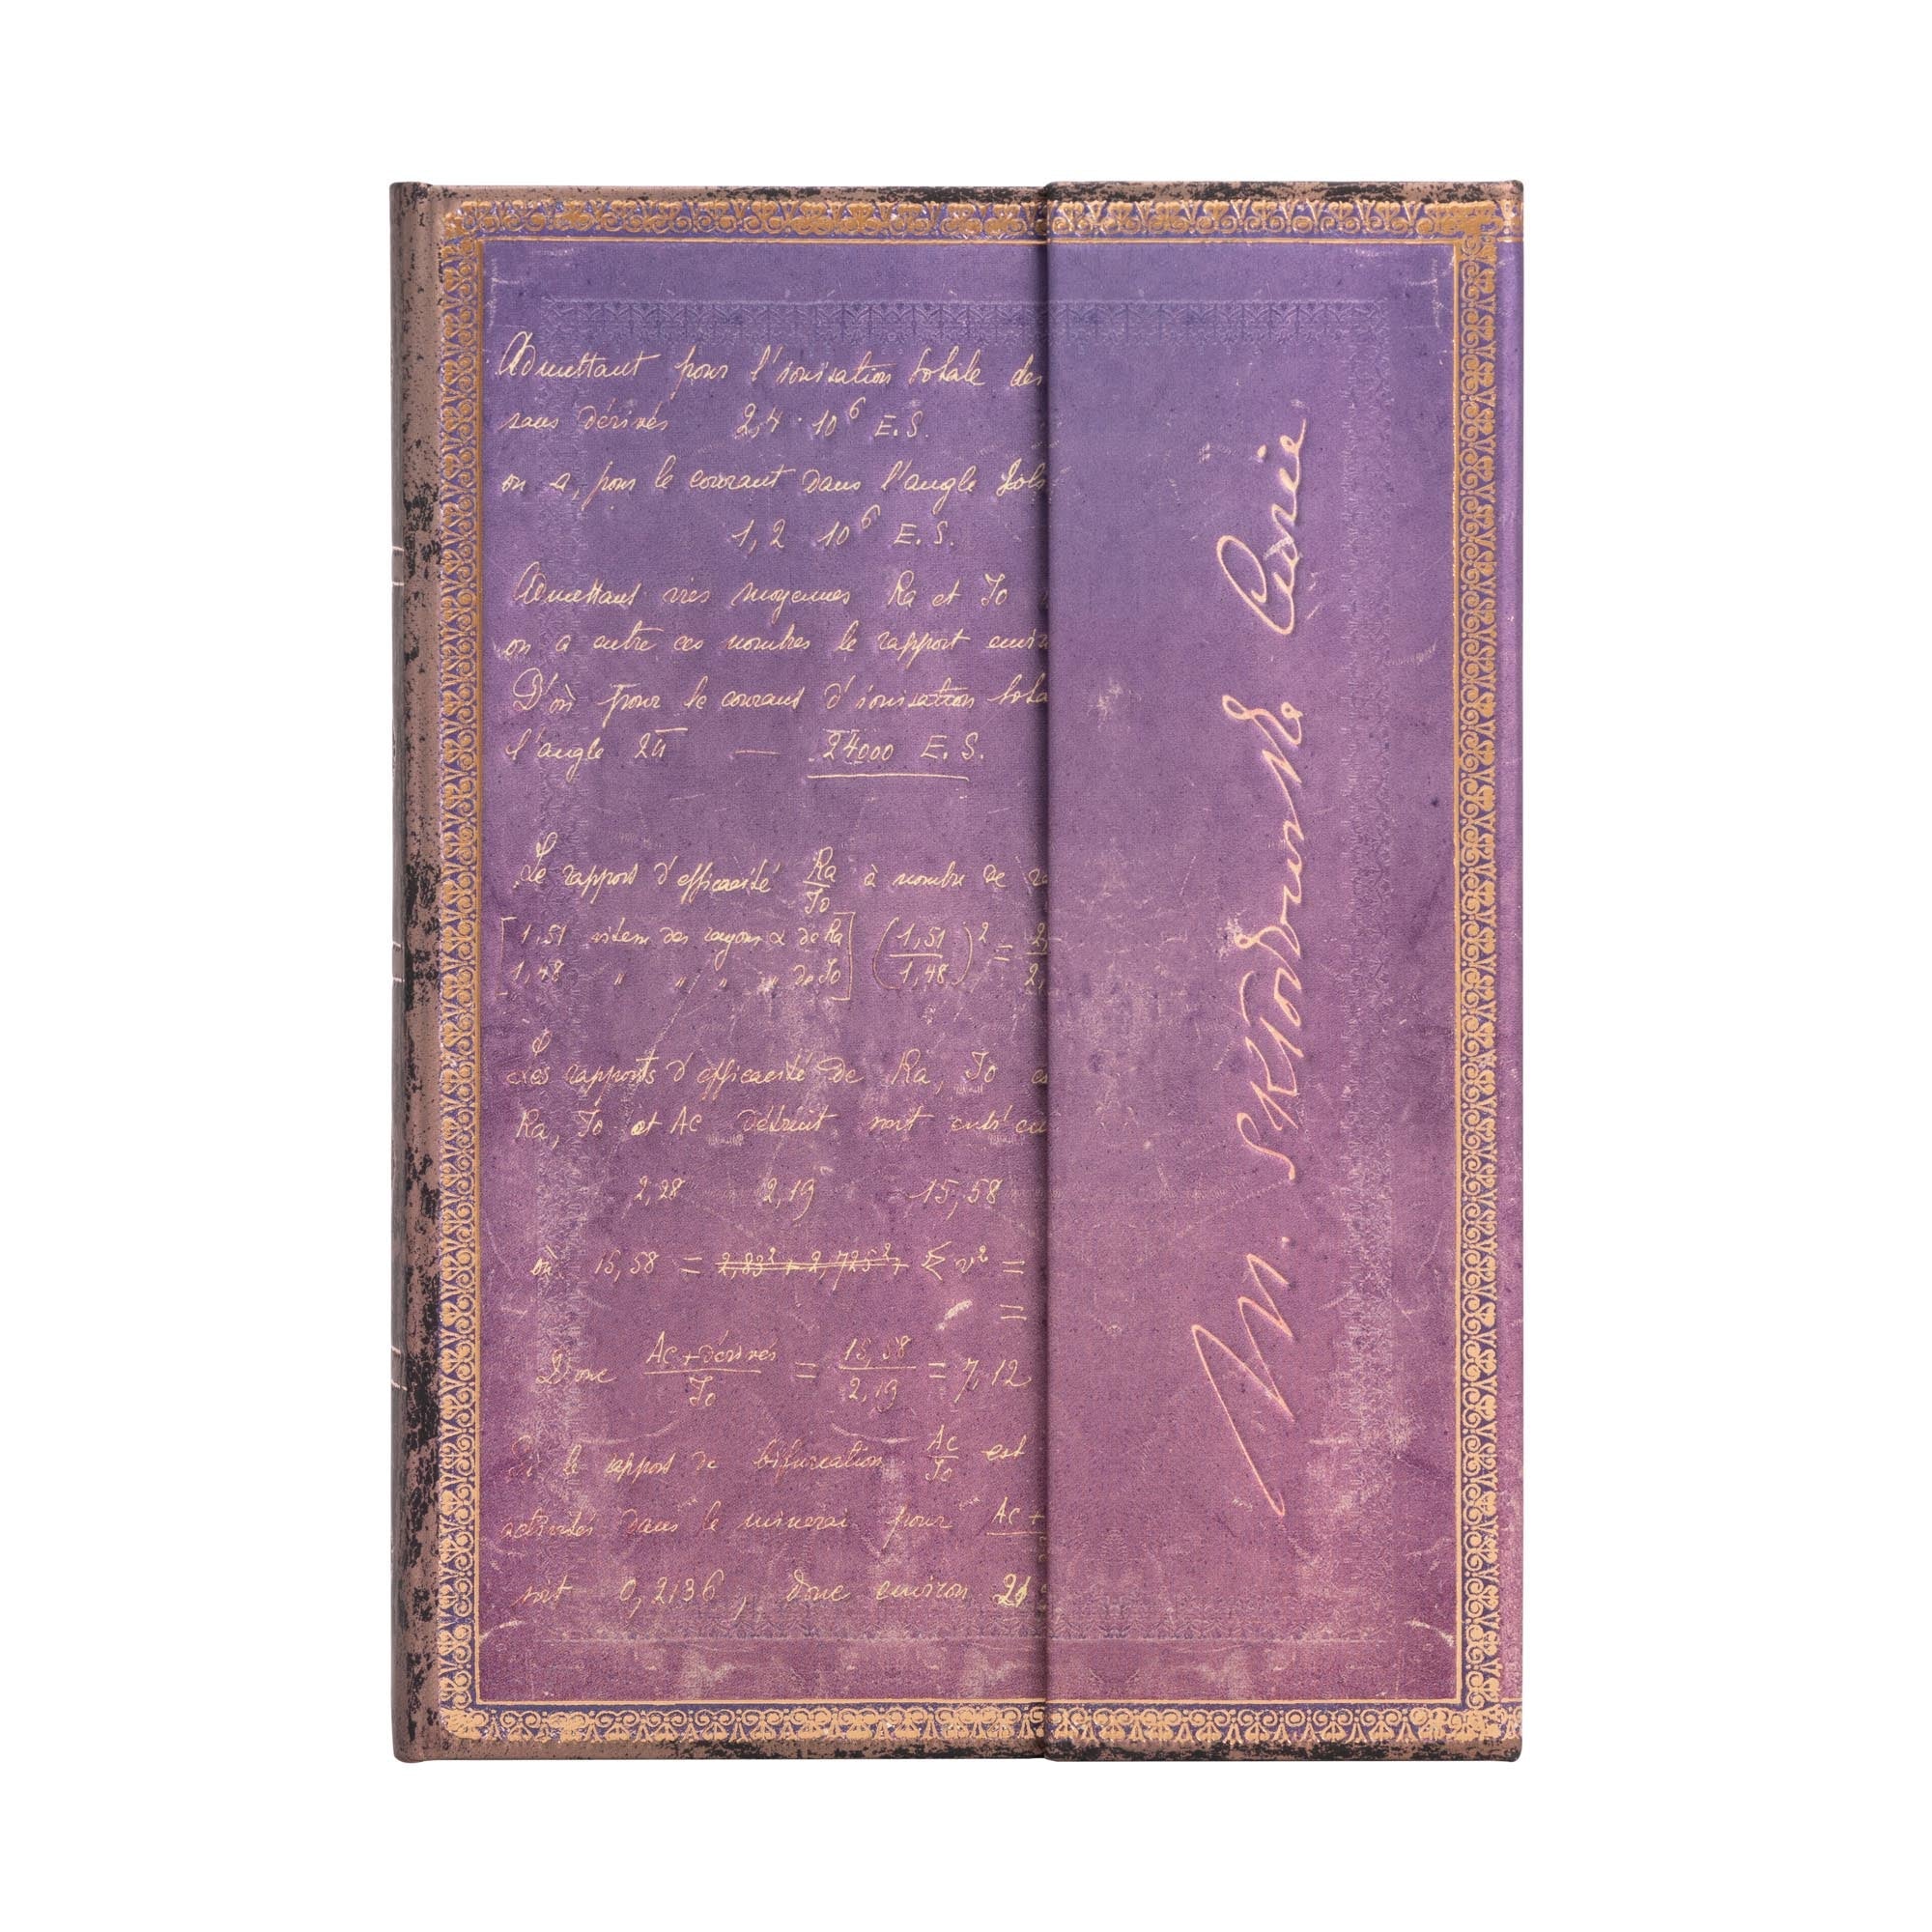 Admettant pour l'ionisation totale des
sans dérivés 2,4 · 10⁶ E.S.
on a, pour le courant dans l'angle
1,2 10⁶ E.S.
Admettant vies moyennes Ra et Io
on a entre ces nombres le rapport
D'où pour le courant d'ionisation
l'angle 2π — 24000 E.S.
Le rapport d'efficacité Ra/Io à nombre de
[1,51 vitesse des rayons α de Ra
1,48 " " " " de Io] (1,51/1,48)² =
Les rapports d'efficacité de Ra, Io
Ra, Io et Ac détruit sont
2,28 2,19 15,58
où 15,58 = 2,83² + 2,725² + Σ v² =
=
Donc Ac + dérivés/Io = 15,58/2,19 = 7,12
Si le rapport de bifurcation Ac/Io est
activités dans le minerai pour Ac +
soit 0,2136, donc environ
M. Skłodowska Curie